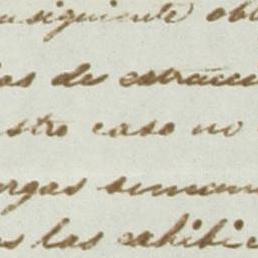 siguiente ob
os de estracc
stro caso no
argas seman
s las exhibic